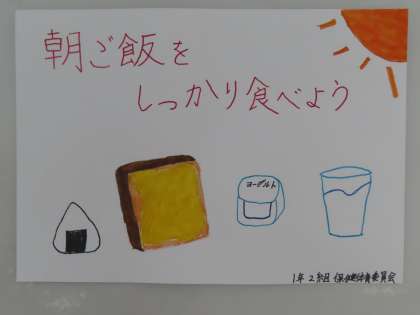 朝ご飯を
しっかり食べよう
ヨーグルト
1年2組 保健体育委員会